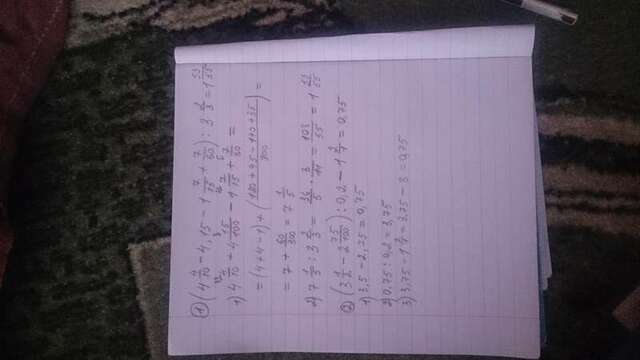 ① (4 4/10 - 4,15 - 1 7/75 + 7/60) : 3 2/3 = 1 53/55
1) 4 4/10 + 4 15/100 - 1 7/75 + 7/60 =
= (4+4-1) + (120+45-140+35/300) =
= 7 + 60/300 = 7 1/5
2) 7 1/5 : 3 2/3 = 36/5 · 3/11 = 108/55 = 1 53/55
② (3 1/2 - 2 75/100) : 0,2 - 1 2/1 = 0,75
1) 3,5 - 2,75 = 0,75
2) 0,75 : 0,2 = 3,75
3) 3,75 - 1 2/1 = 3,75 - 3 = 0,75